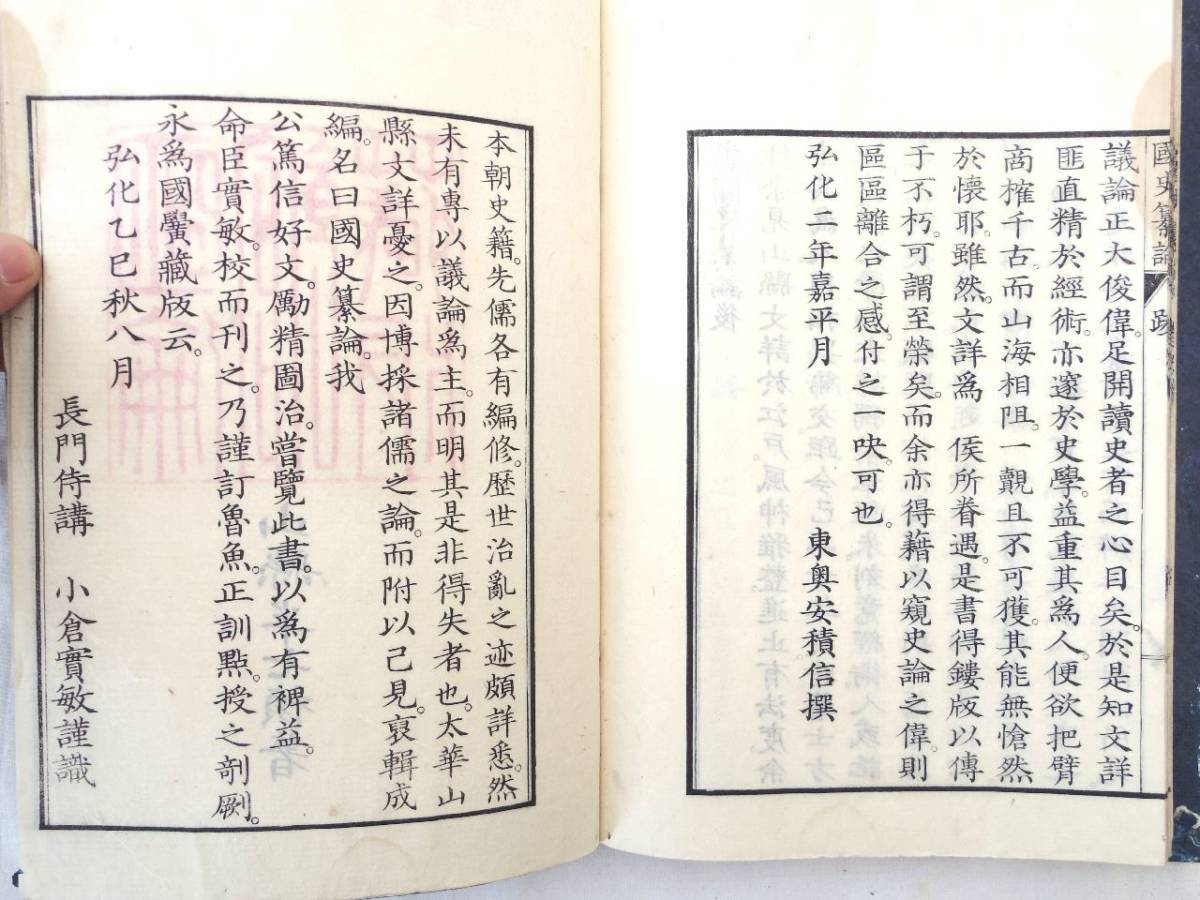 國史纂論 跋
議論正大俊偉。足開讀史者之心目矣。於是知文詳
匪直精於經術。亦邃於史學。益重其爲人。便欲把臂
商搉千古。而山海相阻。一覿且不可獲。其能無愴然
於懷耶。雖然。文詳爲 侯所眷遇。是書得鏤版以傳
于不朽。可謂至榮矣。而余亦得藉以窺史論之偉。則
區區離合之感。付之一吷可也。
弘化二年嘉平月 東奥安積信撰
本朝史籍。先儒各有編修。歷世治亂之迹頗詳悉。然
未有專以議論爲主。而明其是非得失者也。太華山
縣文詳憂之。因博採諸儒之論。而附以己見。裒輯成
編。名曰國史纂論。我
公篤信好文。勵精圖治。嘗覽此書。以爲有裨益。
命臣實敏。校而刊之。乃謹訂魯魚。正訓點。授之剞劂。
永爲國黌藏版云。
弘化乙巳秋八月
長門侍講 小倉實敏謹識